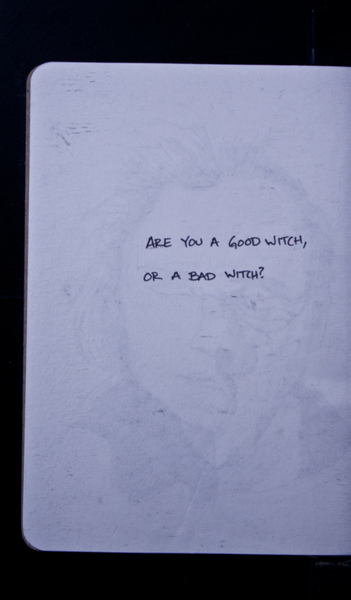 ARE YOU A GOOD WITCH,
OR A BAD WITCH?